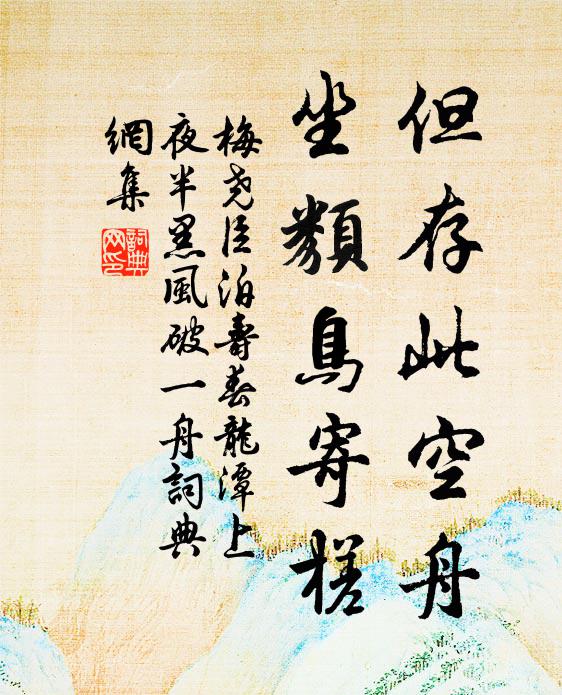 但存此空舟
坐類鳥寄槎
梅尧臣泊壽春龍潭上
夜半黑風破一舟詞典
網集
詞典
网印